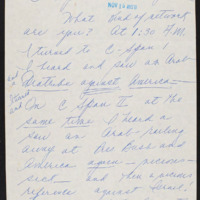 NOV 24 REC'D
What kind of network
are you? At 1:30 A.M.
I turned to C-Span I
I heard and saw an Arab
diatribe against America —
On C Span II at the
same time I heard &
saw an Arab railing
away at the Bus and
America again —
and then a
reference against Israel!